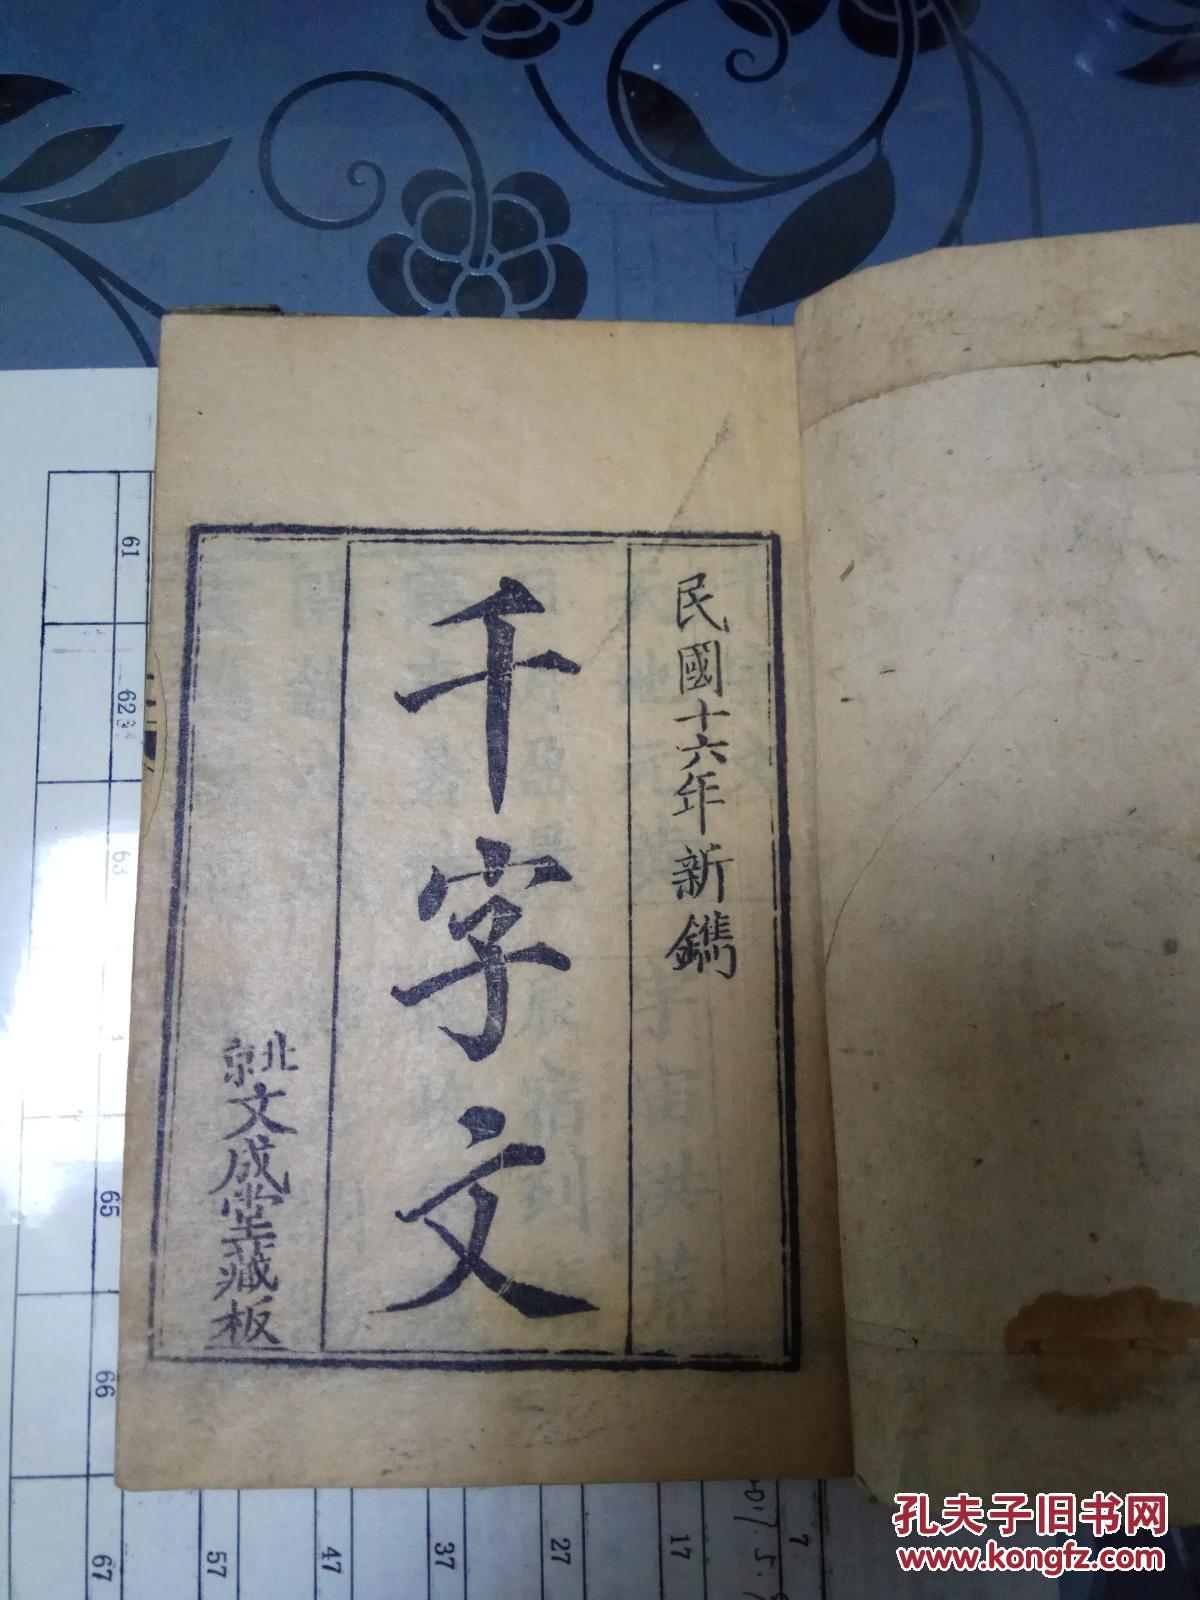 民國十六年新鐫
千字文
北京文成堂藏板
61
62
63
65
66
67
57
47
37
27
17
7
孔夫子旧书网
www.kongfz.com